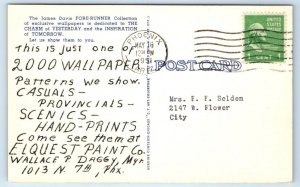 The James Davis FORE-RUNNER Collection
of exclusive wallpapers is dedicated to THE
CHARM of YESTERDAY and the INSPIRATION
of TOMORROW.
Let us show them to you.
this is just one of
2000 WALLPAPER
Patterns we show.
CASUALS-
PROVINCIALS-
SCENICS-
HAND-PRINTS
Come see them at
ELQUEST PAINT Co.
WALLACE P. DAGGY, Mgr.
1013 N. 7th, Phx.
MAY 16
1951
POST CARD
Mrs. F. F. Seldem
2147 W. Flower
City